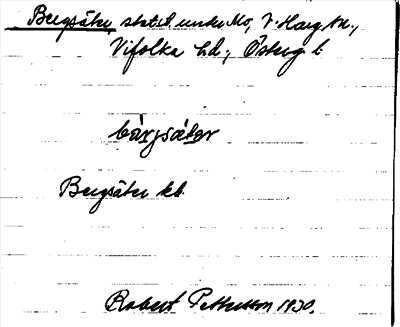 Bergsäter slutet under Mo, V. Harg sn.,
Vifolka hd., Österg. l.
bärjsäter
Bergsäter kb
Robert Pettersson 1930.